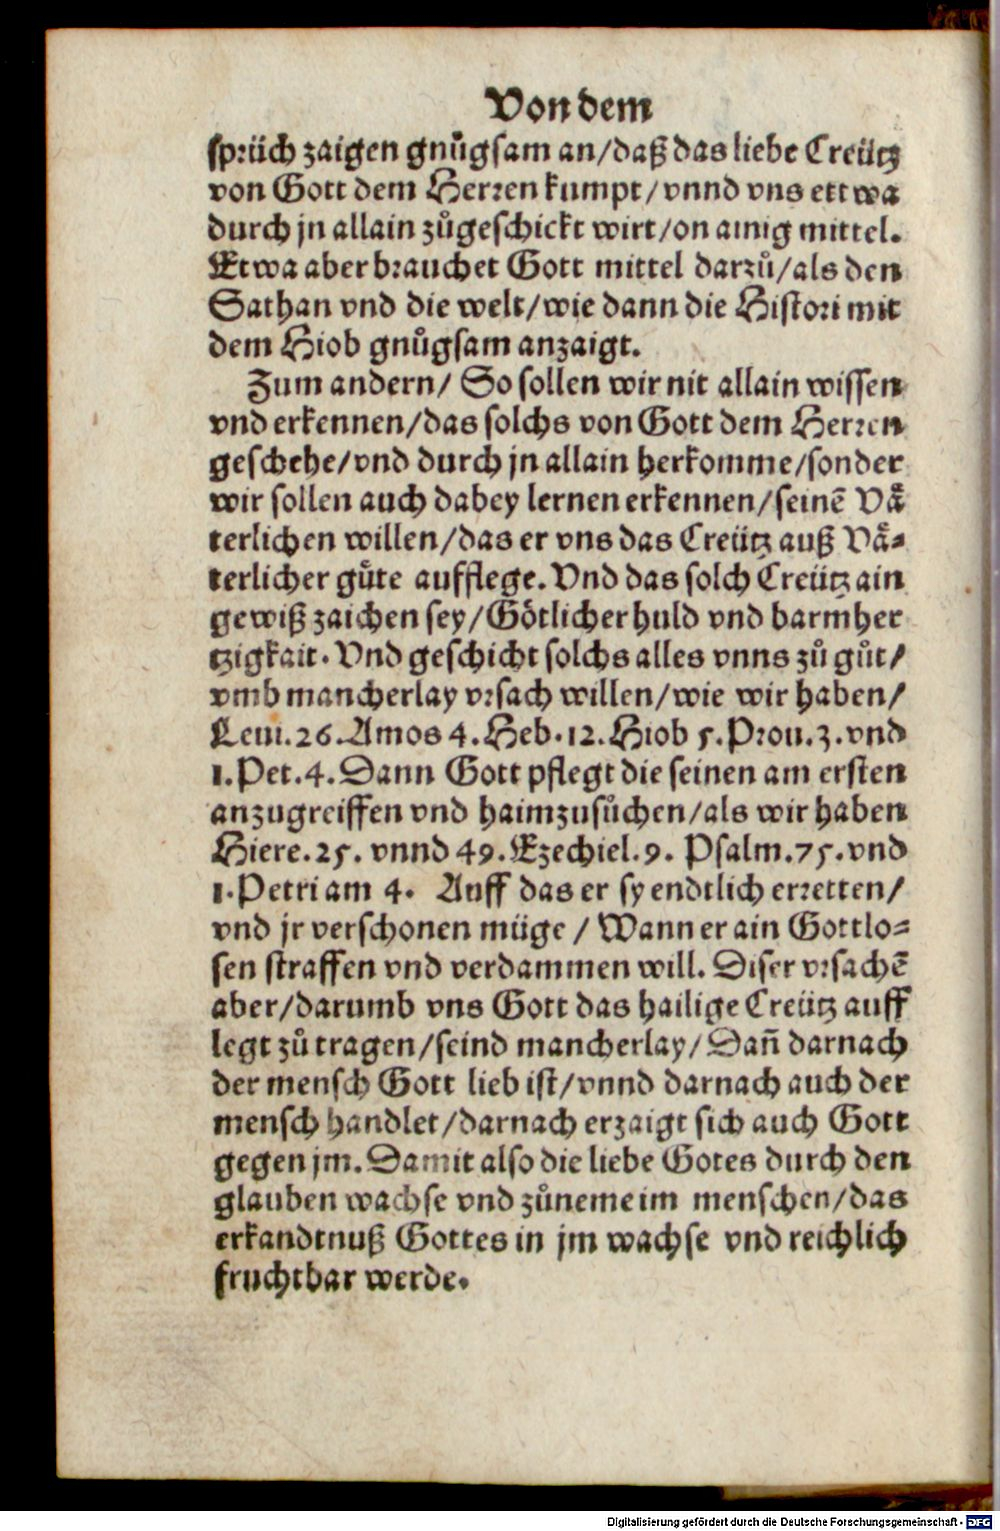 Von dem
sprüch zaigen gnůgsam an/daß das liebe Creütz
von Gott dem Herren kumpt/vnnd vns ettwa
durch jn allain zůgeschickt wirt/on ainig mittel.
Etwa aber brauchet Gott mittel darzů/als den
Sathan vnd die welt/wie dann die Histori mit
dem Hiob gnůgsam anzaigt.
Zum andern/ So sollen wir nit allain wissen
vnd erkennen/das solchs von Gott dem Herren
geschehe/vnd durch jn allain herkomme/sonder
wir sollen auch dabey lernen erkennen/seinē Vaͤ
terlichen willen/das er vns das Creütz auß Vaͤ⸗
terlicher guͤte aufflege. Vnd das solch Creütz ain
gewiß zaichen sey/Goͤtlicher huld vnd barmher
tzigkait. Vnd geschicht solchs alles vnns zů gůt/
vmb mancherlay vrsach willen/wie wir haben/
Leui.26. Amos 4. Heb.12. Hiob 5. Prou.3. vnd
1. Pet.4. Dann Gott pflegt die seinen am ersten
anzugreiffen vnd haimzusůchen/als wir haben
Hiere.25. vnnd 49. Ezechiel.9. Psalm.75. vnd
1. Petri am 4. Auff das er sy endtlich erretten/
vnd jr verschonen müge / Wann er ain Gottlo⸗
sen straffen vnd verdammen will. Diser vrsachē
aber/darumb vns Gott das hailige Creütz auff
legt zů tragen/seind mancherlay/Dañ darnach
der mensch Gott lieb ist/vnnd darnach auch der
mensch handlet/darnach erzaigt sich auch Gott
gegen jm. Damit also die liebe Gotes durch den
glauben wachse vnd zůneme im menschen/das
erkandtnuß Gottes in jm wachse vnd reichlich
fruchtbar werde.
Digitalisierung gefördert durch die Deutsche Forschungsgemeinschaft - DFG